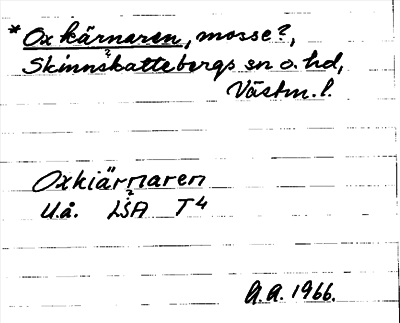 * Oxkärnaren, mosse?,
Skinnskattebergs sn o. hd,
Västm. l.
Oxkiärnaren
U.å. LSA T4
A.A. 1966.